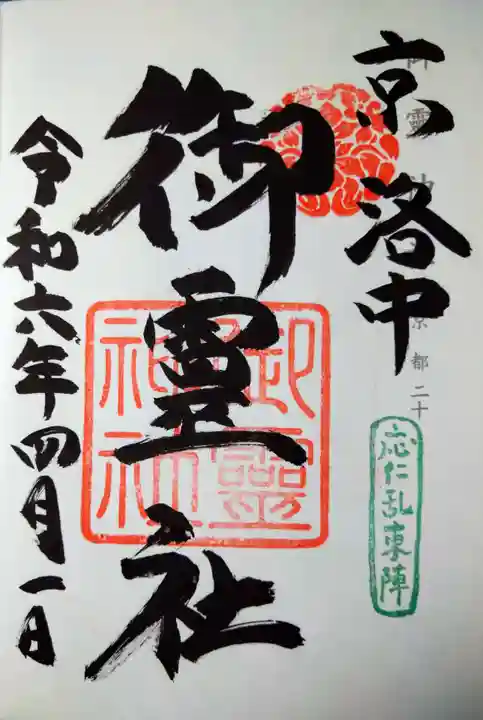 京洛中
御靈社
令和六年四月一日
御靈神社
応仁乱東陣
京都二十